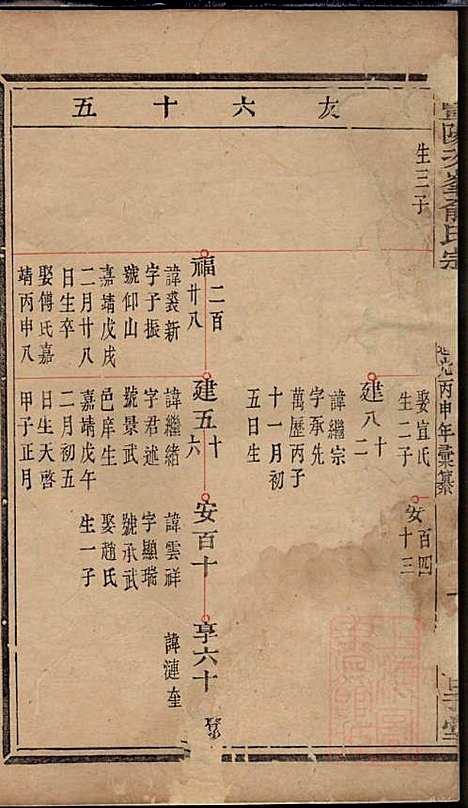 五十六友
生三子
娶宜氏
生二子
安百四十三
建八十二
諱繼宗
字承先
萬歷丙子
十一月初
五日生
福二百廿八
諱裘新
字子振
號仰山
嘉靖戊戌
二月廿八
日生卒
娶傅氏嘉
靖丙申八
建五十六
諱繼緒
字君述
號景武
邑庠生
嘉靖戊午
二月初五
日生天啓
甲子正月
安百十
諱雲祥
字顯瑞
號承武
娶趙氏
生一子
享六十
諱漣奎
丙申年彙纂